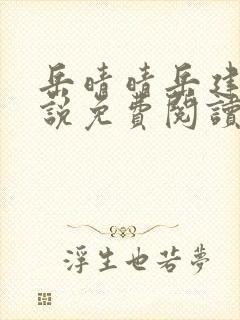 岳晴晴岳建
說免費閱讀
浮生也若夢